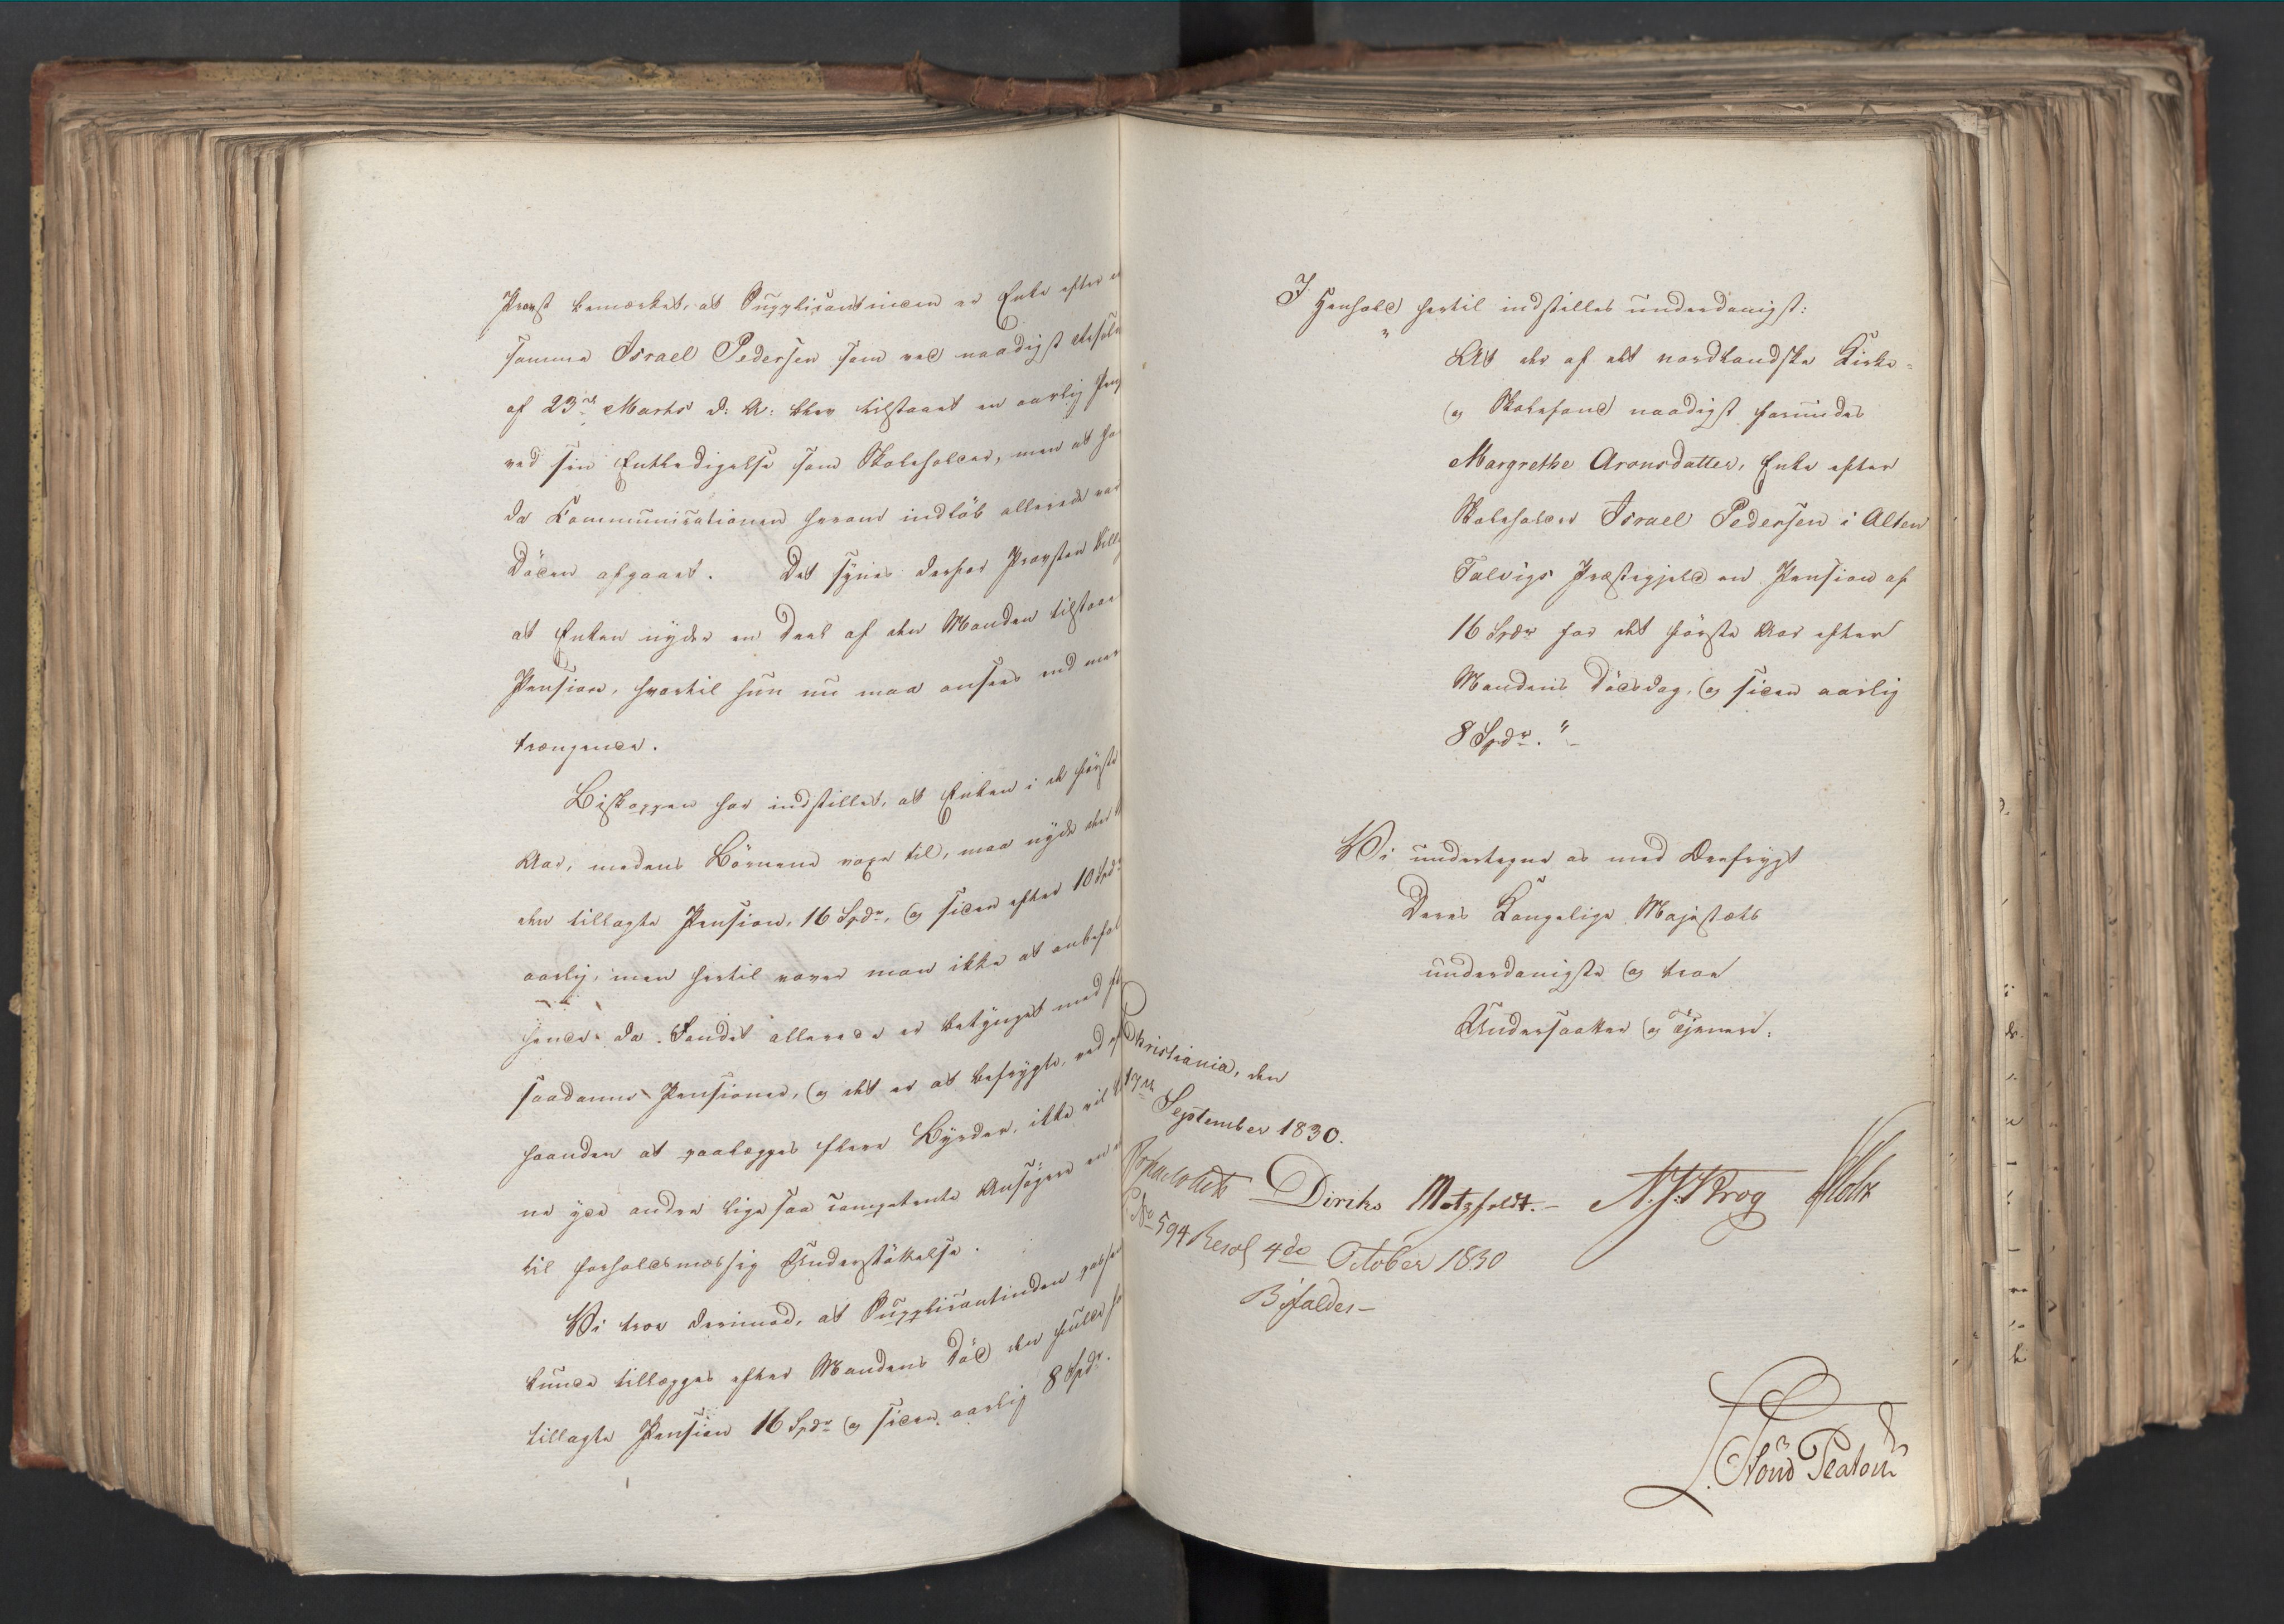 Provst bemærket, at Supplicantinden er Enke efter
samme Israel Pedersen som ved naadigst Resolu
af 23de Marts d: A: blev tilstaaet en aarlig Pen
ved sin Entledigelse som Skoleholder, men at
da Communicationen herom indløb allerede var
Døden afgaaet. Det synes derfor Provsten bill
at Enken nyder en Deel af den Manden tilstaae
Pension, hvortil hun nu maa ansees end mer
trængende.
Biskoppen har indstillet, at Enken i de første
Aar, medens Børnene voxe til, maa nyde den
den tillagte Pension, 16 Spdr, og siden efter 10 Spdr
aarlig, men hertil vover man ikke at anbefal
hende da Fondet allerede er betynget med
saadanne Pensioner, og det er at befrygte, ved
haanden at paalægges flere Byrder, ikke vil
ne yde andre ligesaa competente Ansøgere en
til forholdsmæssig Understøttelse.
Vi troe derimod, at Supplicantinden
kunde tillægges efter Mandens Død den fulde
tillagte Pension 16 Spdr og siden aarlig 8 Spdr.
I Henhold hertil indstilles underdanigst:
"At der af det nordlandske Kirke-
og Skolefond naadigst forundes
Margrethe Aronsdatter, Enke efter
Skoleholder Israel Pedersen i Alten
Talvigs Præstegjeld en Pension af
16 Spdr for det første Aar efter
Mandens Dødsdag, og siden aarlig
8 Spdr."
Vi undertegne os med Ærefrygt
Deres Kongelige Majestæts
underdanigste og troe
Undersaatter og Tjenere.
Christiania, den
17de September 1830.
Diriks Motzfeldt. N. J. Krog Holst
No 594 Resol 4de October 1830
Bifaldes